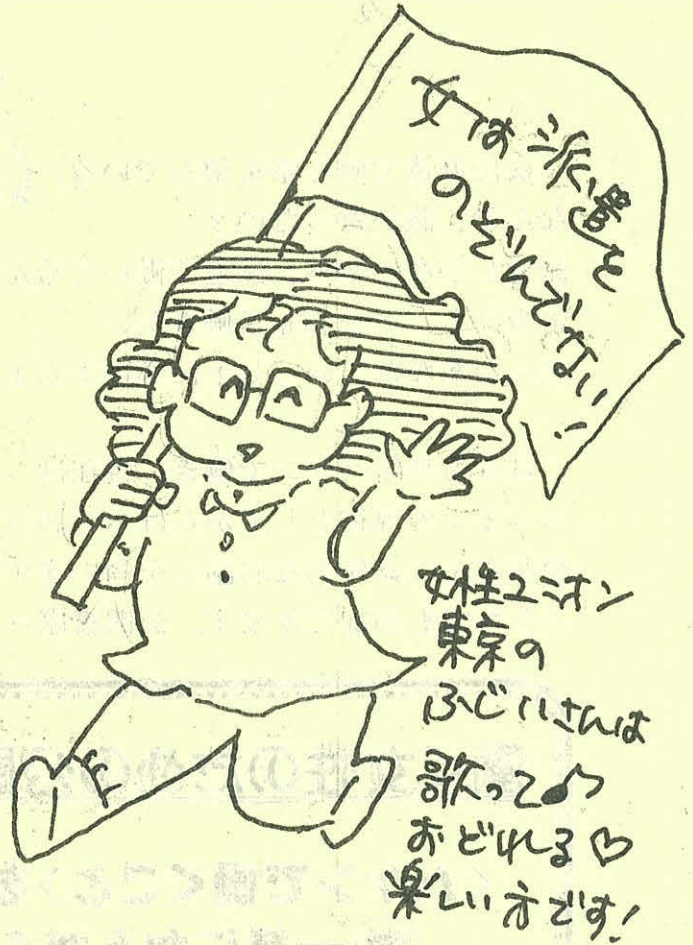 女は派遣を
のぞんでない!
女性ユニオン
東京の
ふじいさんは
歌って♪
おどれる♡
楽しい方です!